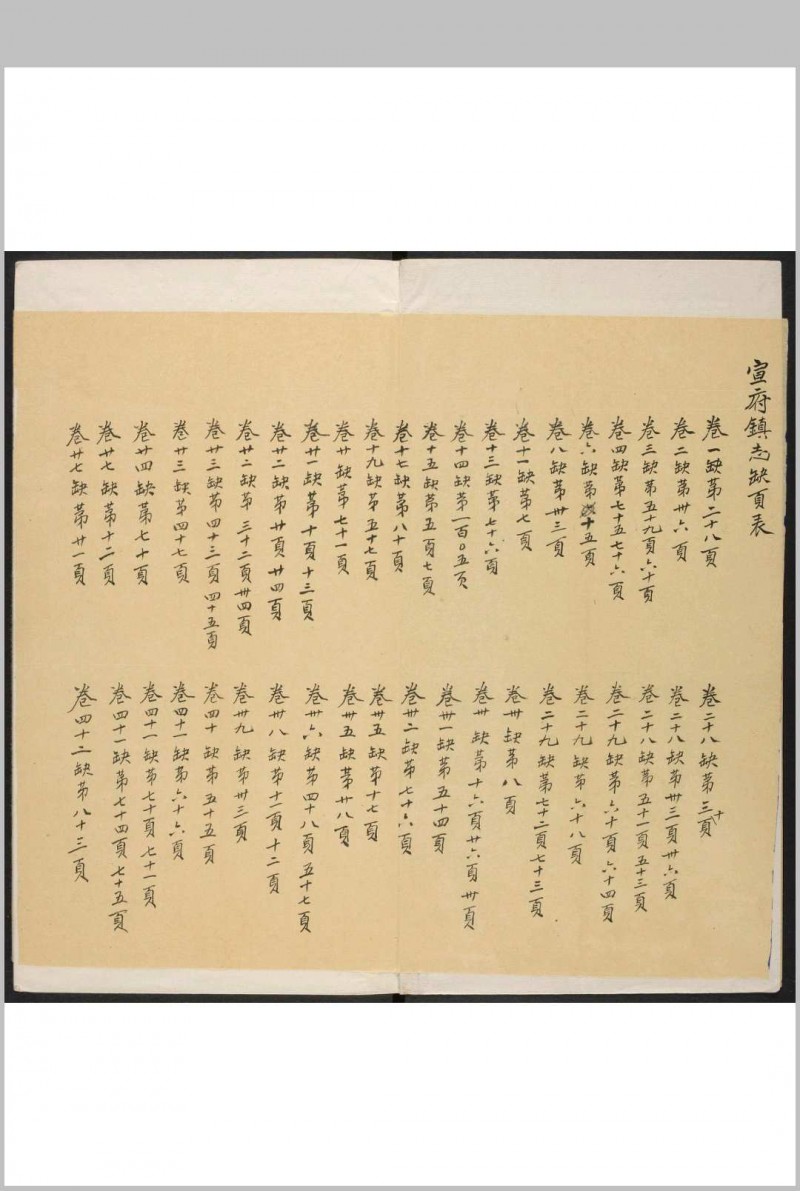 宣府鎮志缺頁表
卷一缺第二十八頁
卷二缺第卅六頁
卷三缺第五十九頁六十頁
卷四缺第七十五七十六頁
卷六缺第十五頁
卷八缺第卅三頁
卷十一缺第七頁
卷十三缺第七十六頁
卷十四缺第一百〇五頁
卷十五缺第五頁七頁
卷十七缺第八十頁
卷十九缺第五十七頁
卷廿缺第七十一頁
卷廿一缺第十頁十三頁
卷廿二缺第廿頁廿四頁
卷廿二缺第三十二頁卅四頁
卷廿三缺第四十三頁四十五頁
卷廿三缺第四十七頁
卷廿四缺第七十頁
卷廿七缺第十二頁
卷廿七缺第廿一頁
卷二十八缺第三十頁
卷二十八缺第卅三頁卅六頁
卷二十八缺第五十一頁五十三頁
卷二十九缺第六十頁六十四頁
卷二十九缺第六十八頁
卷二十九缺第七十二頁七十三頁
卷卅缺第八頁
卷卅缺第十六頁廿六頁卅頁
卷卅一缺第五十四頁
卷卅二缺第七十六頁
卷卅五缺第十七頁
卷卅五缺第廿八頁
卷卅六缺第四十八頁五十七頁
卷卅八缺第十一頁十二頁
卷卅九缺第卅三頁
卷四十缺第五十五頁
卷四十一缺第六十六頁
卷四十一缺第七十頁七十一頁
卷四十一缺第七十四頁七十五頁
卷四十二缺第八十三頁